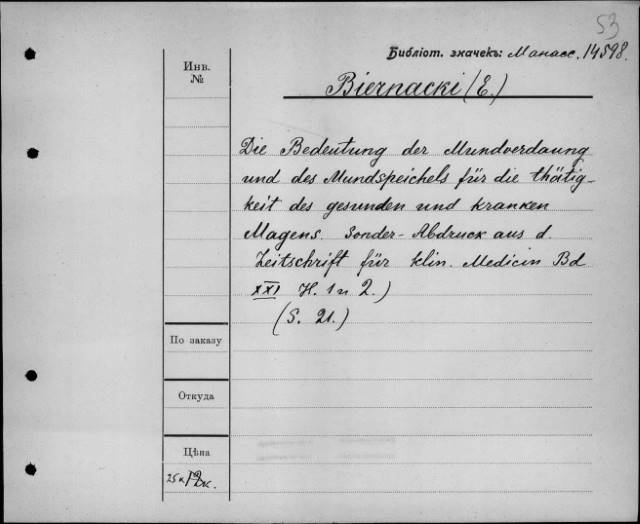 53
Библіот. значекъ: Манасс. 14598.
Инв.
№
Biernacki (E.)
Die Bedeutung der Mundverdauung
und des Mundspeichels für die thätig-
keit des gesunden und kranken
Magens. Sonder-Abdruck aus d.
Zeitschrift für klin. Medicin Bd
XXI H. 1 u 2.)
(S. 21.)
По заказу
Откуда
Цѣна
25к